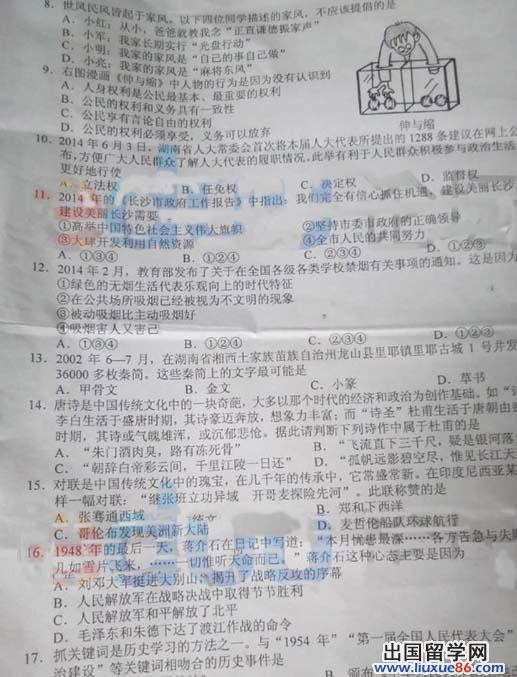 8. 世风民风皆起于家风。以下四位同学描述的家风，不应该提倡的是
A. 小红：从小，爸爸就教我念“正直谦德振家声”
B. 小军：我家长期实行“光盘行动”
C. 小明：我家的家风是“自己的事自己做”
D. 小亮：我家的家风是“麻将东风”
9. 右图漫画《伸与缩》中人物的行为是因为没有认识到
A. 人身权利是公民最基本、最重要的权利
B. 公民的权利和义务具有一致性
C. 公民享有言论自由的权利
D. 公民的权利必须享受，义务可以放弃
伸与缩
10. 2014年6月3日，湖南省人大常委会首次将本届人大代表所提出的1288条建议在网上公
布，方便广大人民群众了解人大代表的履职情况。此举有利于人民群众积极参与政治生活
更好地行使
A. 立法权 B. 任免权 C. 决定权 D. 监督权
11. 2014年的《长沙市政府工作报告》中指出：我们完全有信心抓住机遇，建设美丽长沙
建设美丽长沙需要
①高举中国特色社会主义伟大旗帜 ②坚持市委市政府的正确领导
③大肆开发利用自然资源 ④全市人民的共同努力
A. ①③④ B. ①②④ C. ①②③ D. ②③④
12. 2014年2月，教育部发布了关于在全国各级各类学校禁烟有关事项的通知。这是因为
①绿色的无烟生活代表乐观向上的时代特征
②在公共场所吸烟已经被视为不文明的现象
③被动吸烟比主动吸烟好
④吸烟害人又害己
A. ①③④ B. ①②③ C. ②③④ D. ①②④
13. 2002年6—7月，在湖南省湘西土家族苗族自治州龙山县里耶镇里耶古城1号井发
36000多枚秦简。这些秦简上的文字最可能是
A. 甲骨文 B. 金文 C. 小篆 D. 草书
14. 唐诗是中国传统文化中的一块奇葩，大多以那个时代的经济和政治为创作基础。如“诗
李白生活于盛唐时期，其诗豪迈奔放，想象力丰富；而“诗圣”杜甫生活于唐朝由
时期，其诗或气魄雄浑，或沉郁悲怆。据此请判断下列诗作中属于杜甫的是
A. “朱门酒肉臭，路有冻死骨” B. “飞流直下三千尺，疑是银河落
C. “朝辞白帝彩云间，千里江陵一日还” D. “孤帆远影碧空尽，惟见长江天
15. 对联是中国传统文化中的瑰宝，在几千年的传承中，它常盛常新。在印度尼西亚某
样一幅对联：“继张班立功异域 开哥麦探险先河”。此联称赞的是
A. 张骞通西域 B. 郑和下西洋
C. 哥伦布发现美洲新大陆 D. 麦哲伦船队环球航行
16. 1948年的最后一天，蒋介石在日记中写道：“本月忧患最深……各方告急与失败
几如雪片飞来，……一切惟听天命而已。”蒋介石这种心态主要是因为
A. 刘邓大军挺进大别山，揭开了战略反攻的序幕
B. 人民解放军在战略决战中取得节节胜利
C. 人民解放军和平解放了北平
D. 毛泽东和朱德下达了渡江作战的命令
17. 抓关键词是历史学习的方法之一。与“1954年”“第一届全国人民代表大会”
治建设”等关键词相吻合的历史事件是
B. 颁布《
出国留学网
www.liuxue86.com